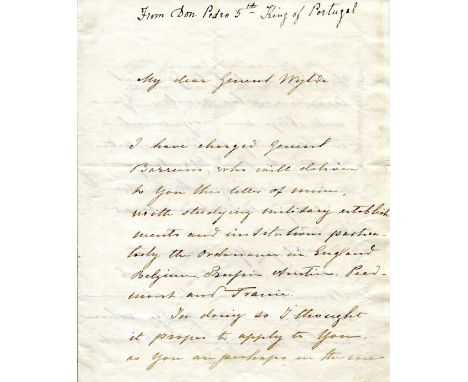 From Don Pedro 5th King of Portugal
My dear General Wylde
I have charged General
Barreiros, who will deliver
to You this letter of mine,
with studying military establish
ments and institutions particu-
larly the Ordnance in England
Belgium, Prussia Austria, Pied-
mont and France.
In doing so I thought
it proper to apply to You,
as You are perhaps in the